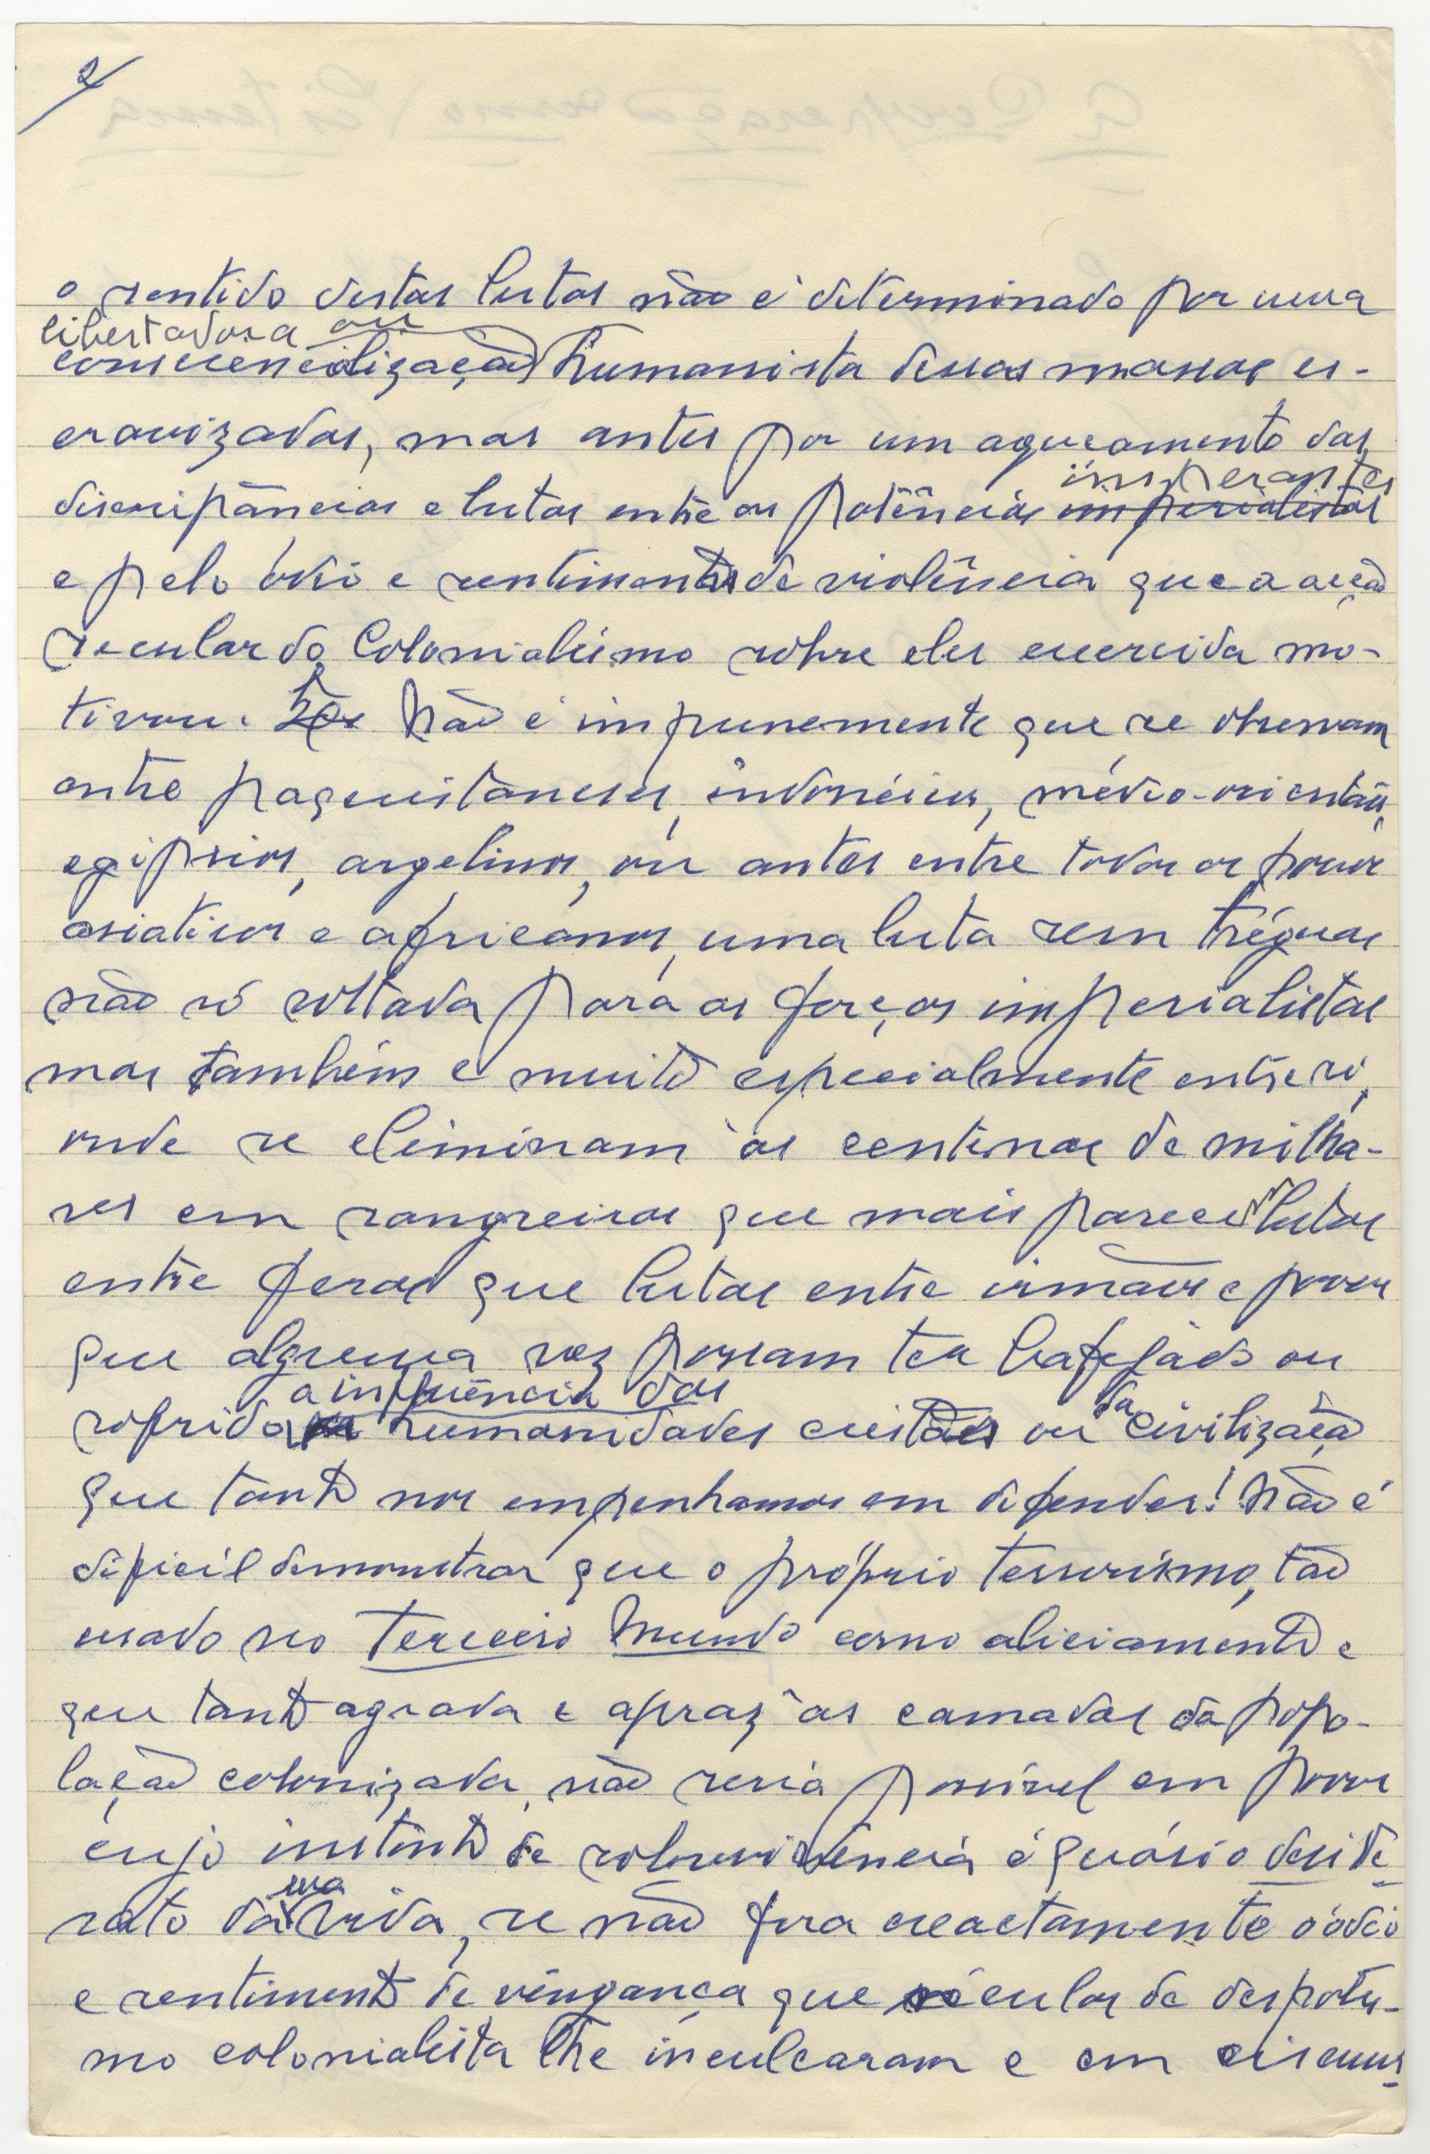 2
o sentido destas lutas não é determinado por uma
libertadora ou
consciencialização humanista dessas massas es-
cravizadas, mas antes por um aquecimento das
discrepâncias e lutas entre as potências imperialistas
imperantes
e pelo ódio e sentimentos de violência que a acção
secular do Colonialismo sobre eles exercida mo-
tivou. Não é impunemente que se observam
entre paquistaneses, indonésios, médio-orientais,
egípsios, argelinos, ou antes entre todos os povos
asiaticos e africanos, uma luta sem tréguas
não só voltada para as forças imperialistas
mas também e muito especialmente entre si,
onde se eliminam às centenas de milha-
res em sangreiras que mais parecem lutas
entre feras que lutas entre irmãos e povos
que alguma vez possam ter bafejado ou
a influência das
sofrido humanidades cristãs ou da civilização
que tanto nos empenhamos em defender! Não é
dificil demonstrar que o próprio terrorismo, tão
usado no Terceiro Mundo como aliciamento e
que tanto agrada e apraz às camadas da popo-
lação colonizada, não seria possível em povos
cujo instinto de sobrevivência é quási o deside-
rato da sua vida, se não fora exactamente o ódio
e sentimento de vingança que séculos de despotis-
mo colonialista lhe inculcaram e em circuns-